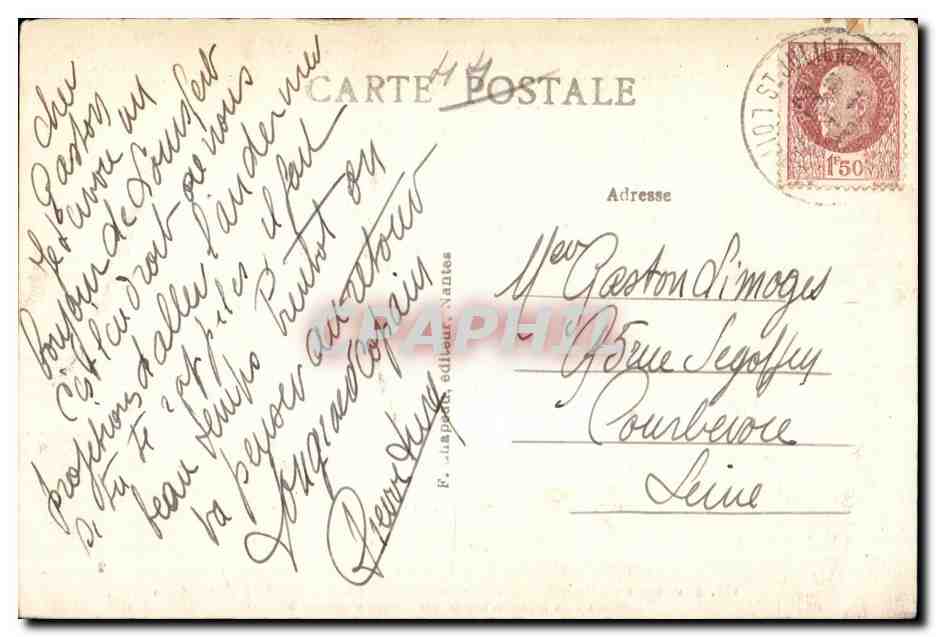 CARTE POSTALE
44
ST JULIEN
1F50
Adresse
Cher
Gaston
Je t'envoie un
bonjour de
c'est l'endroit où nous
proposions d'aller l'an dernier
Si tu te rappelles il fait
beau temps bientôt on
va penser au retour
Ton grand copain
Pierre
F. Chapeau, éditeur, Nantes
Mr Gaston Limoges
95 rue Segoffin
Courbevoie
Seine
CPAPHIL